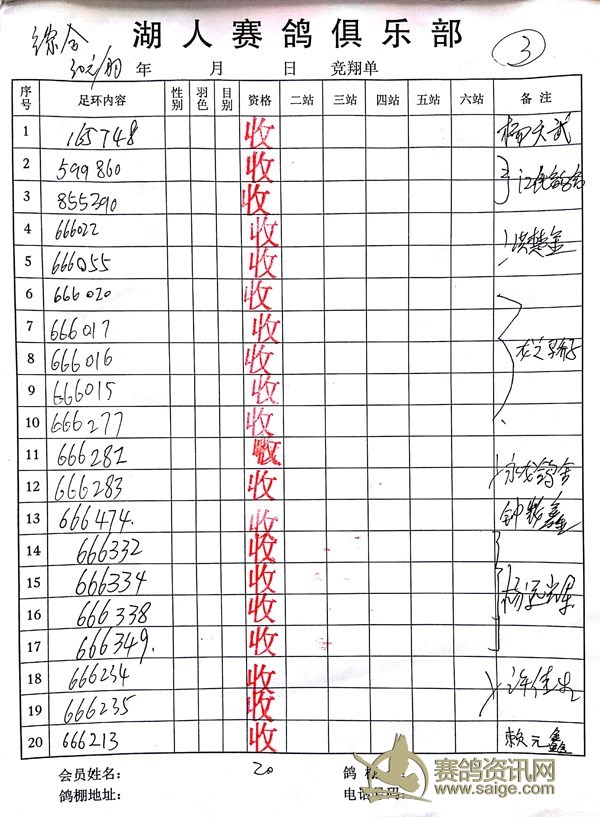 综合 湖人赛鸽俱乐部 ③
50元/羽 年 月 日 竞翔单
序号 足环内容 性别 羽色 目别 资格 二站 三站 四站 五站 六站 备注
1 165748 收
2 599860 收
3 855390 收
4 666022 收
5 666055 收 洪楚金
6 666020 收
7 666017 收
8 666016 收
9 666015 收
10 666277 收
11 666281 收
12 666283 收 永龙鸽舍
13 666474. 收
14 666332 收
15 666334 收
16 666338 收
17 666349. 收
18 666234 收
19 666235 收
20 666213 收 赖元鑫
会员姓名: 20 鸽
鸽棚地址: 电话号码:
赛鸽资讯网
www.saige.com